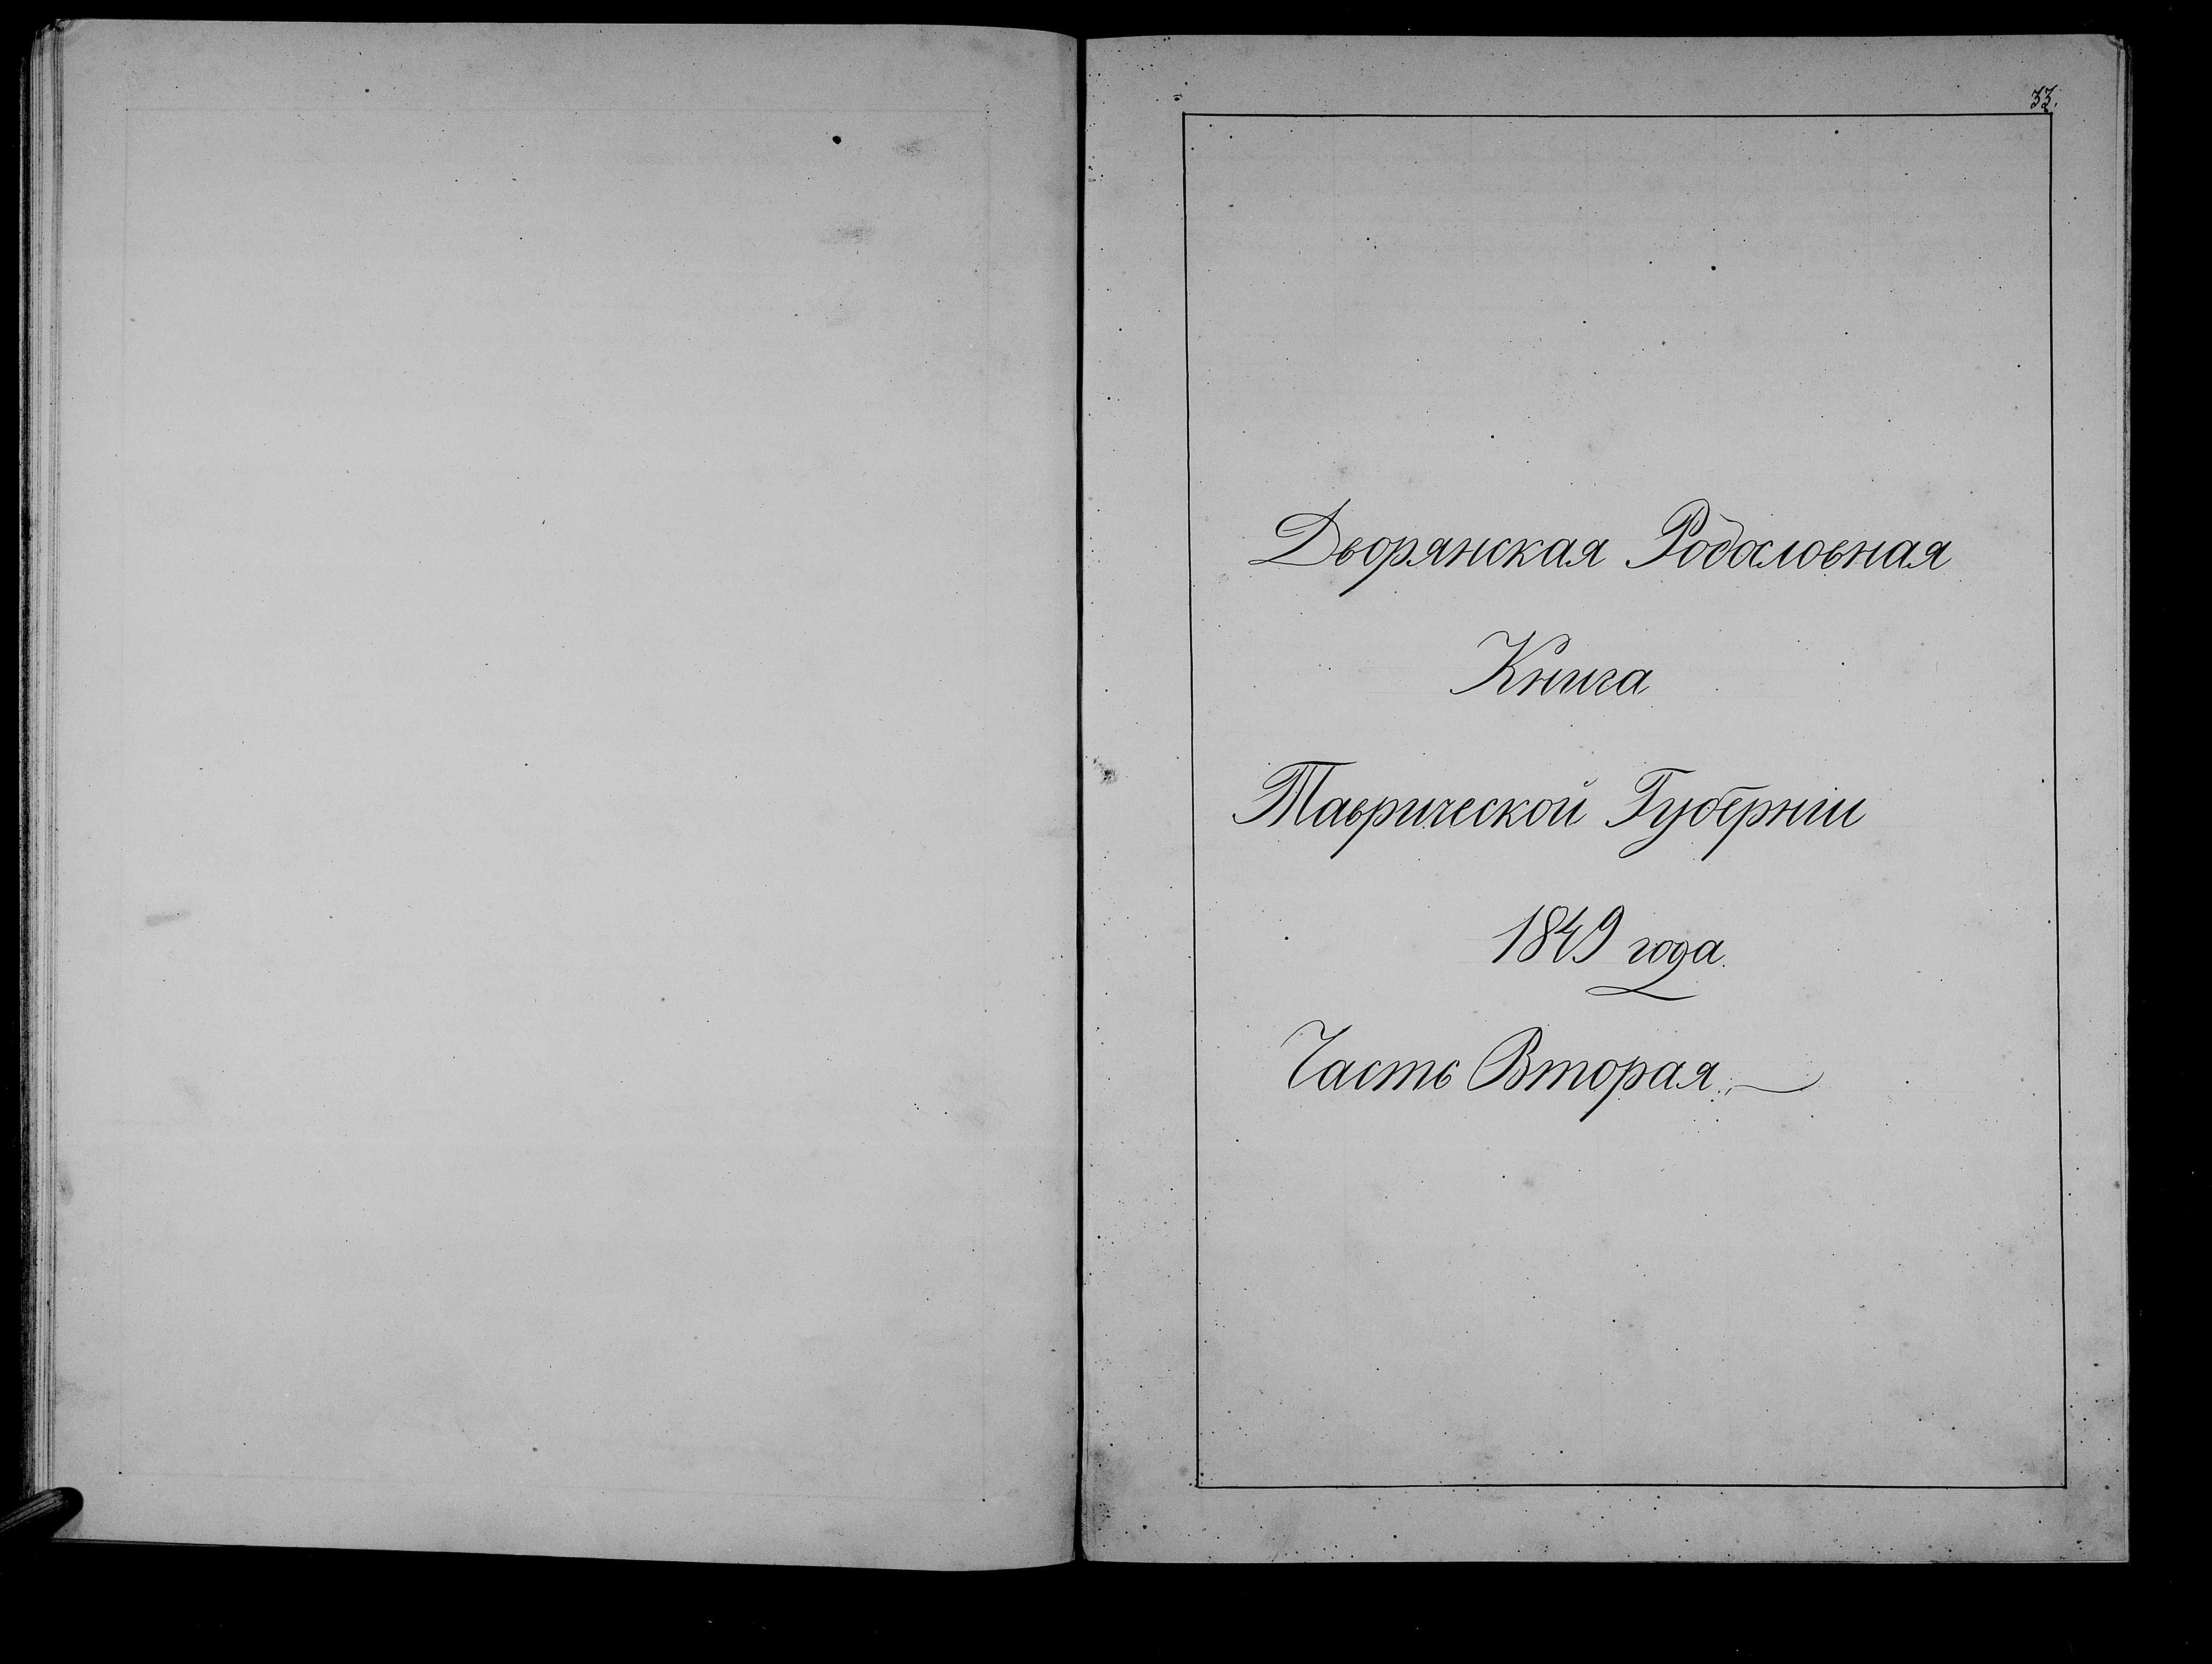 33.
Дворянская Родословная
Книга
Таврической Губерніи
1849 года.
Часть Вторая.